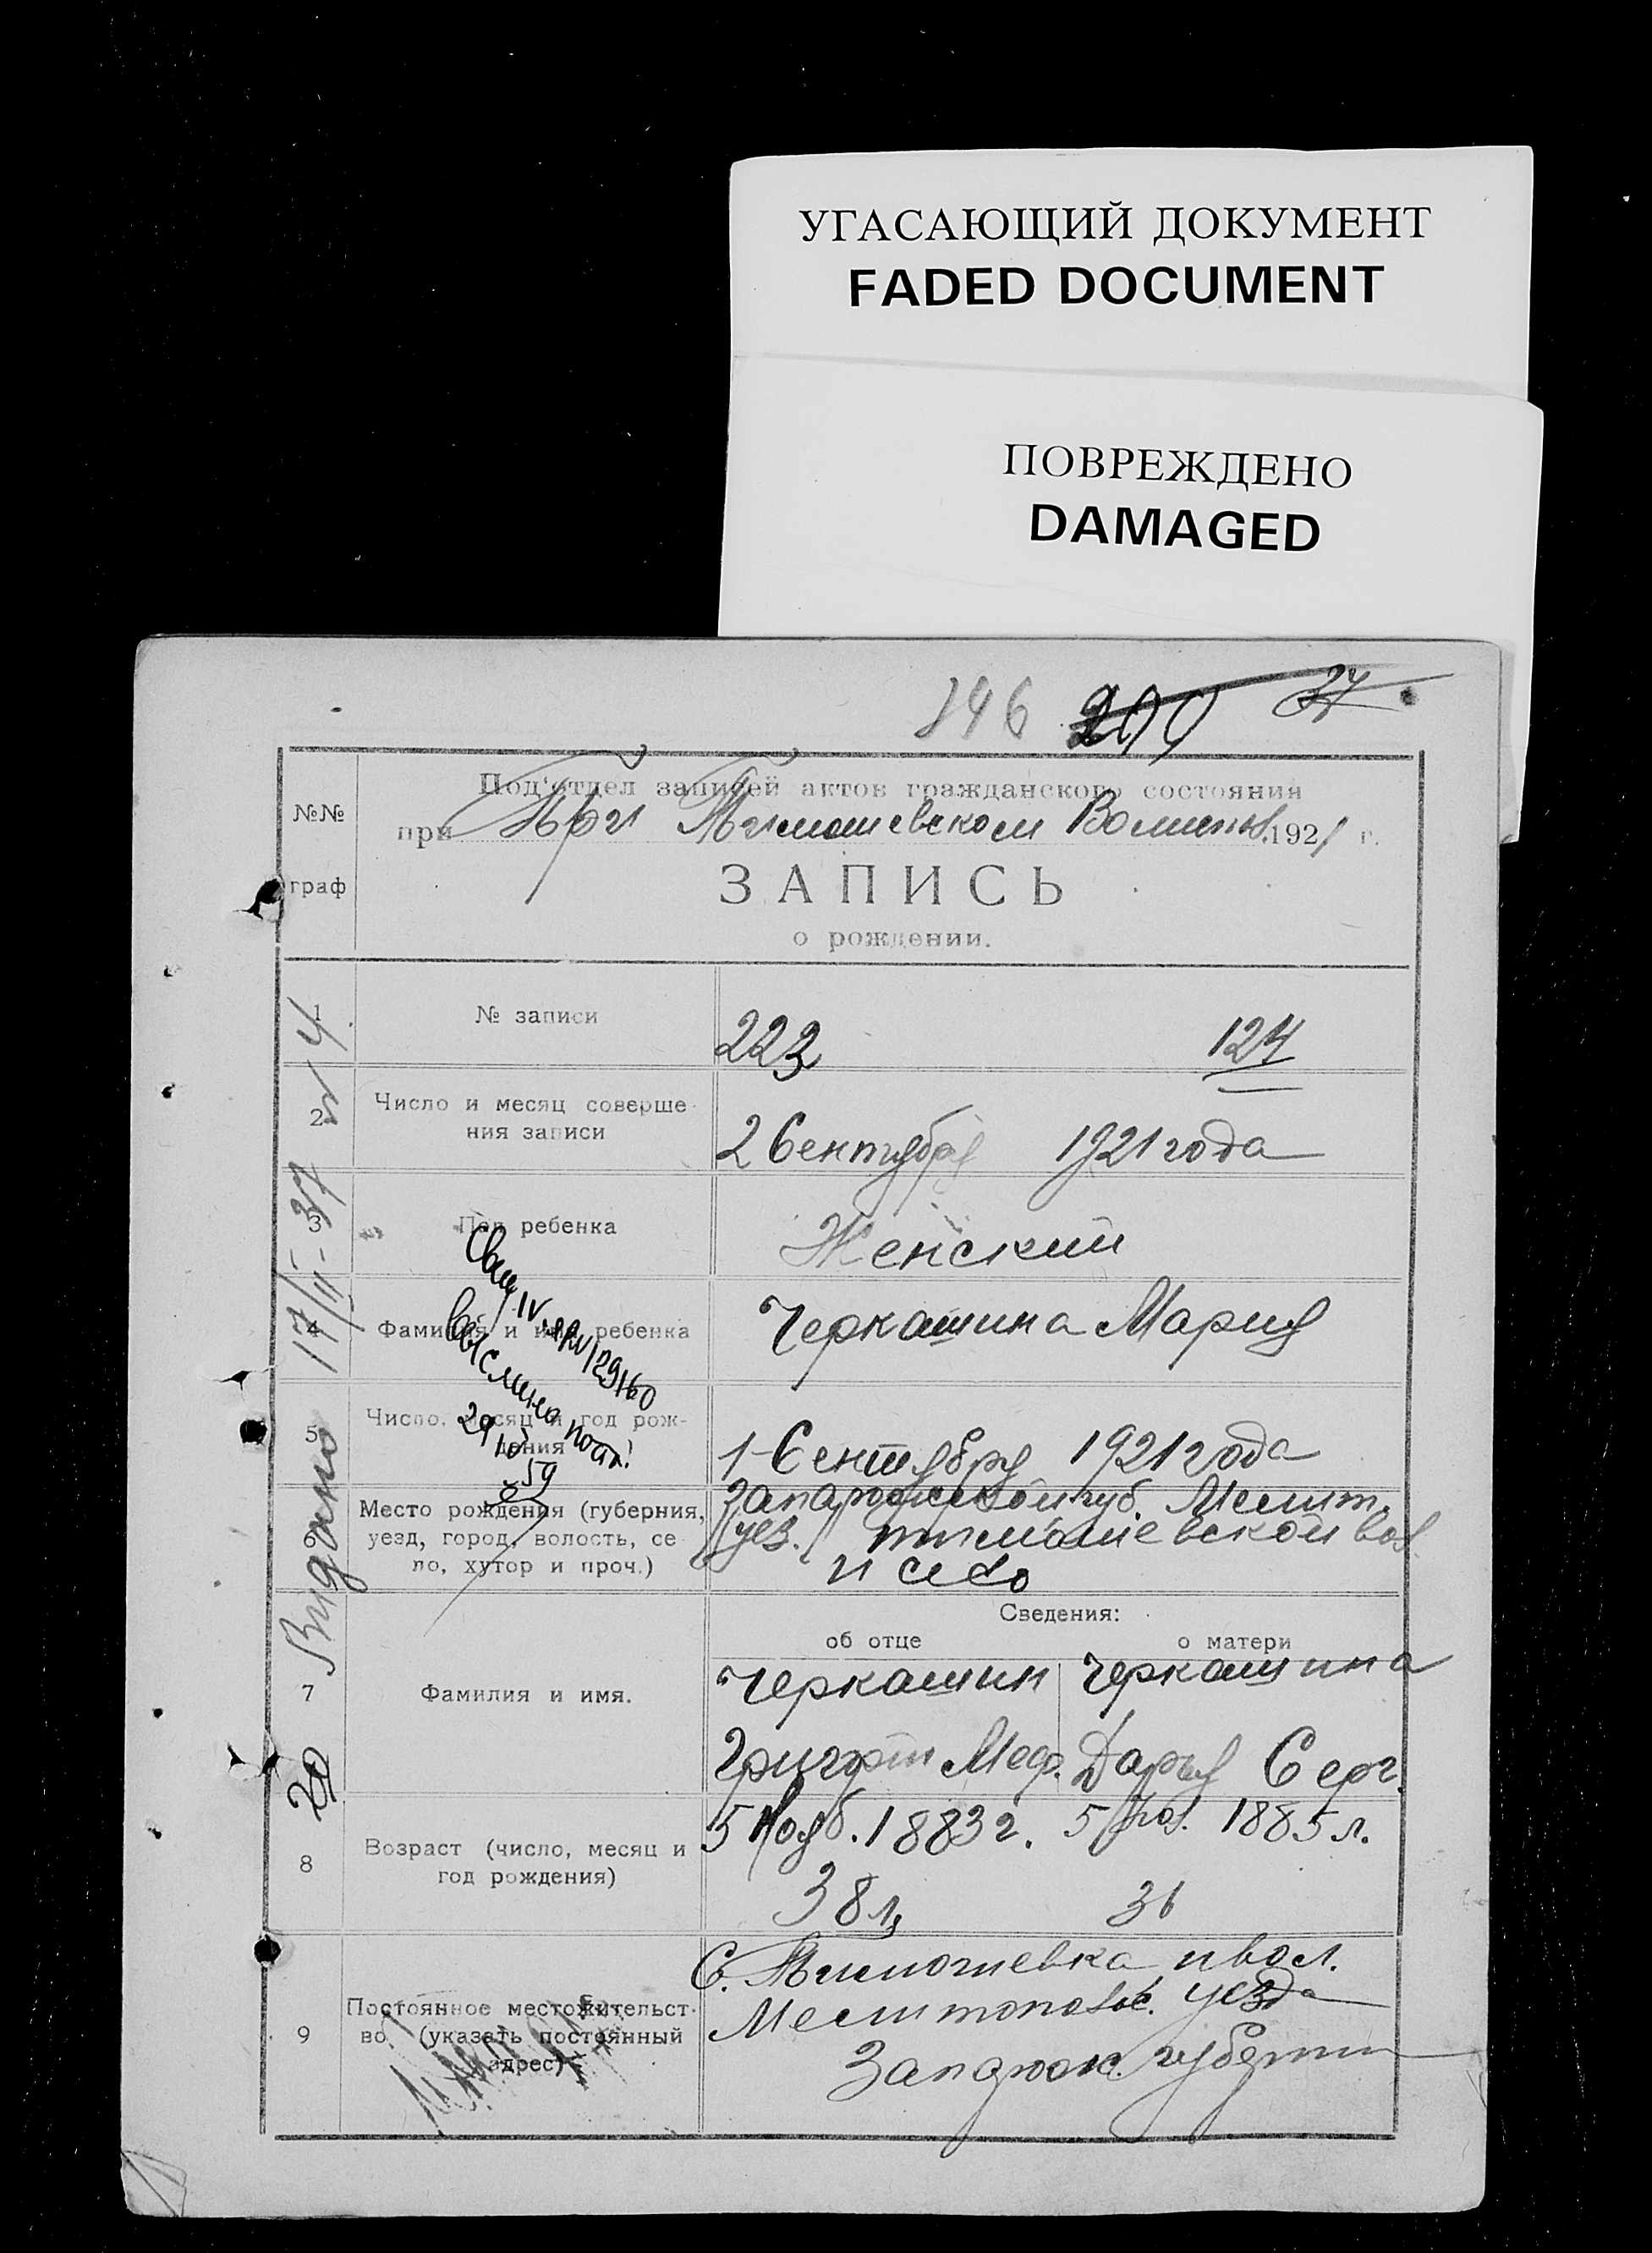 УГАСАЮЩИЙ ДОКУМЕНТ
FADED DOCUMENT
ПОВРЕЖДЕНО
DAMAGED
37
№№
граф
Под‘отдел записей актов гражданского состояния
при Тимошевском 1921 г.
ЗАПИСЬ
о рождении.
1 № записи 223 124
2 Число и месяц соверше-
ния записи 2 Сентября 1921 года
3 Пол ребенка Женский
4 Фамилия и имя ребенка Черкашина Мария
5 Число, месяц и год рож-
дения 1 Сентября 1921 года
6 Место рождения (губерния,
уезд, город, волость, се-
ло, хутор и проч.)
Запарожской губ. Мелит.
уез. тимошевской вол.
и село
Сведения:
об отце о матери
7 Фамилия и имя.
Черкашин Черкашина
Григорий Меф. Дарья Серг.
8 Возраст (число, месяц и
год рождения)
5 Нояб. 1883 г. 5 1885 л.
38 л. 36
9 Постоянное местожительст-
во (указать постоянный
адрес)
С. Тимошевка и вол.
Мелитопольс. уезда
Запарож. губернии
Видано 17/II-37
29
59
20